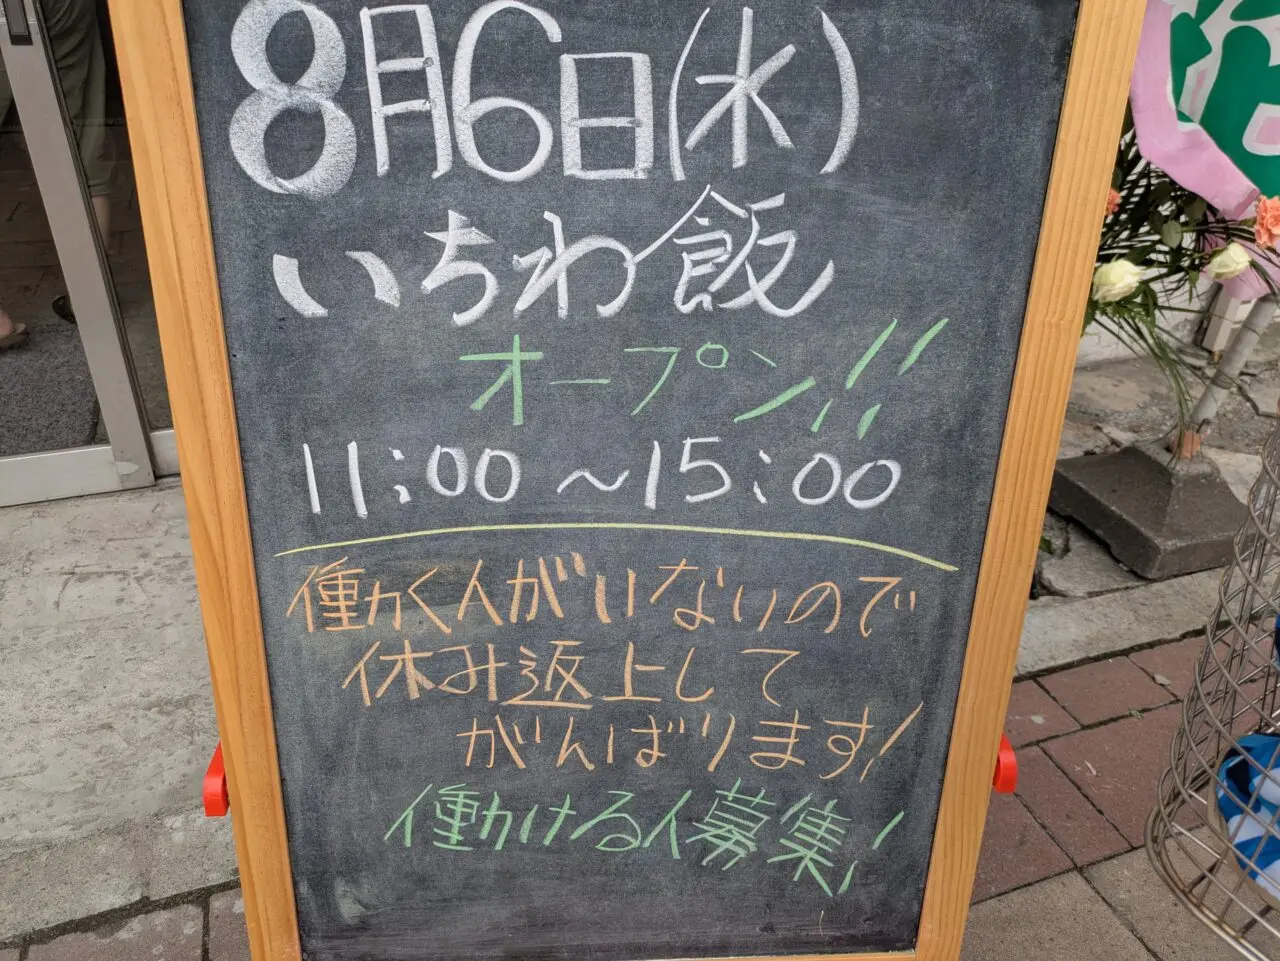 8月6日(水)
いちわ飯
オープン!!
11:00~15:00
働く人がいないので
休み返上して
がんばります!
働ける人募集!